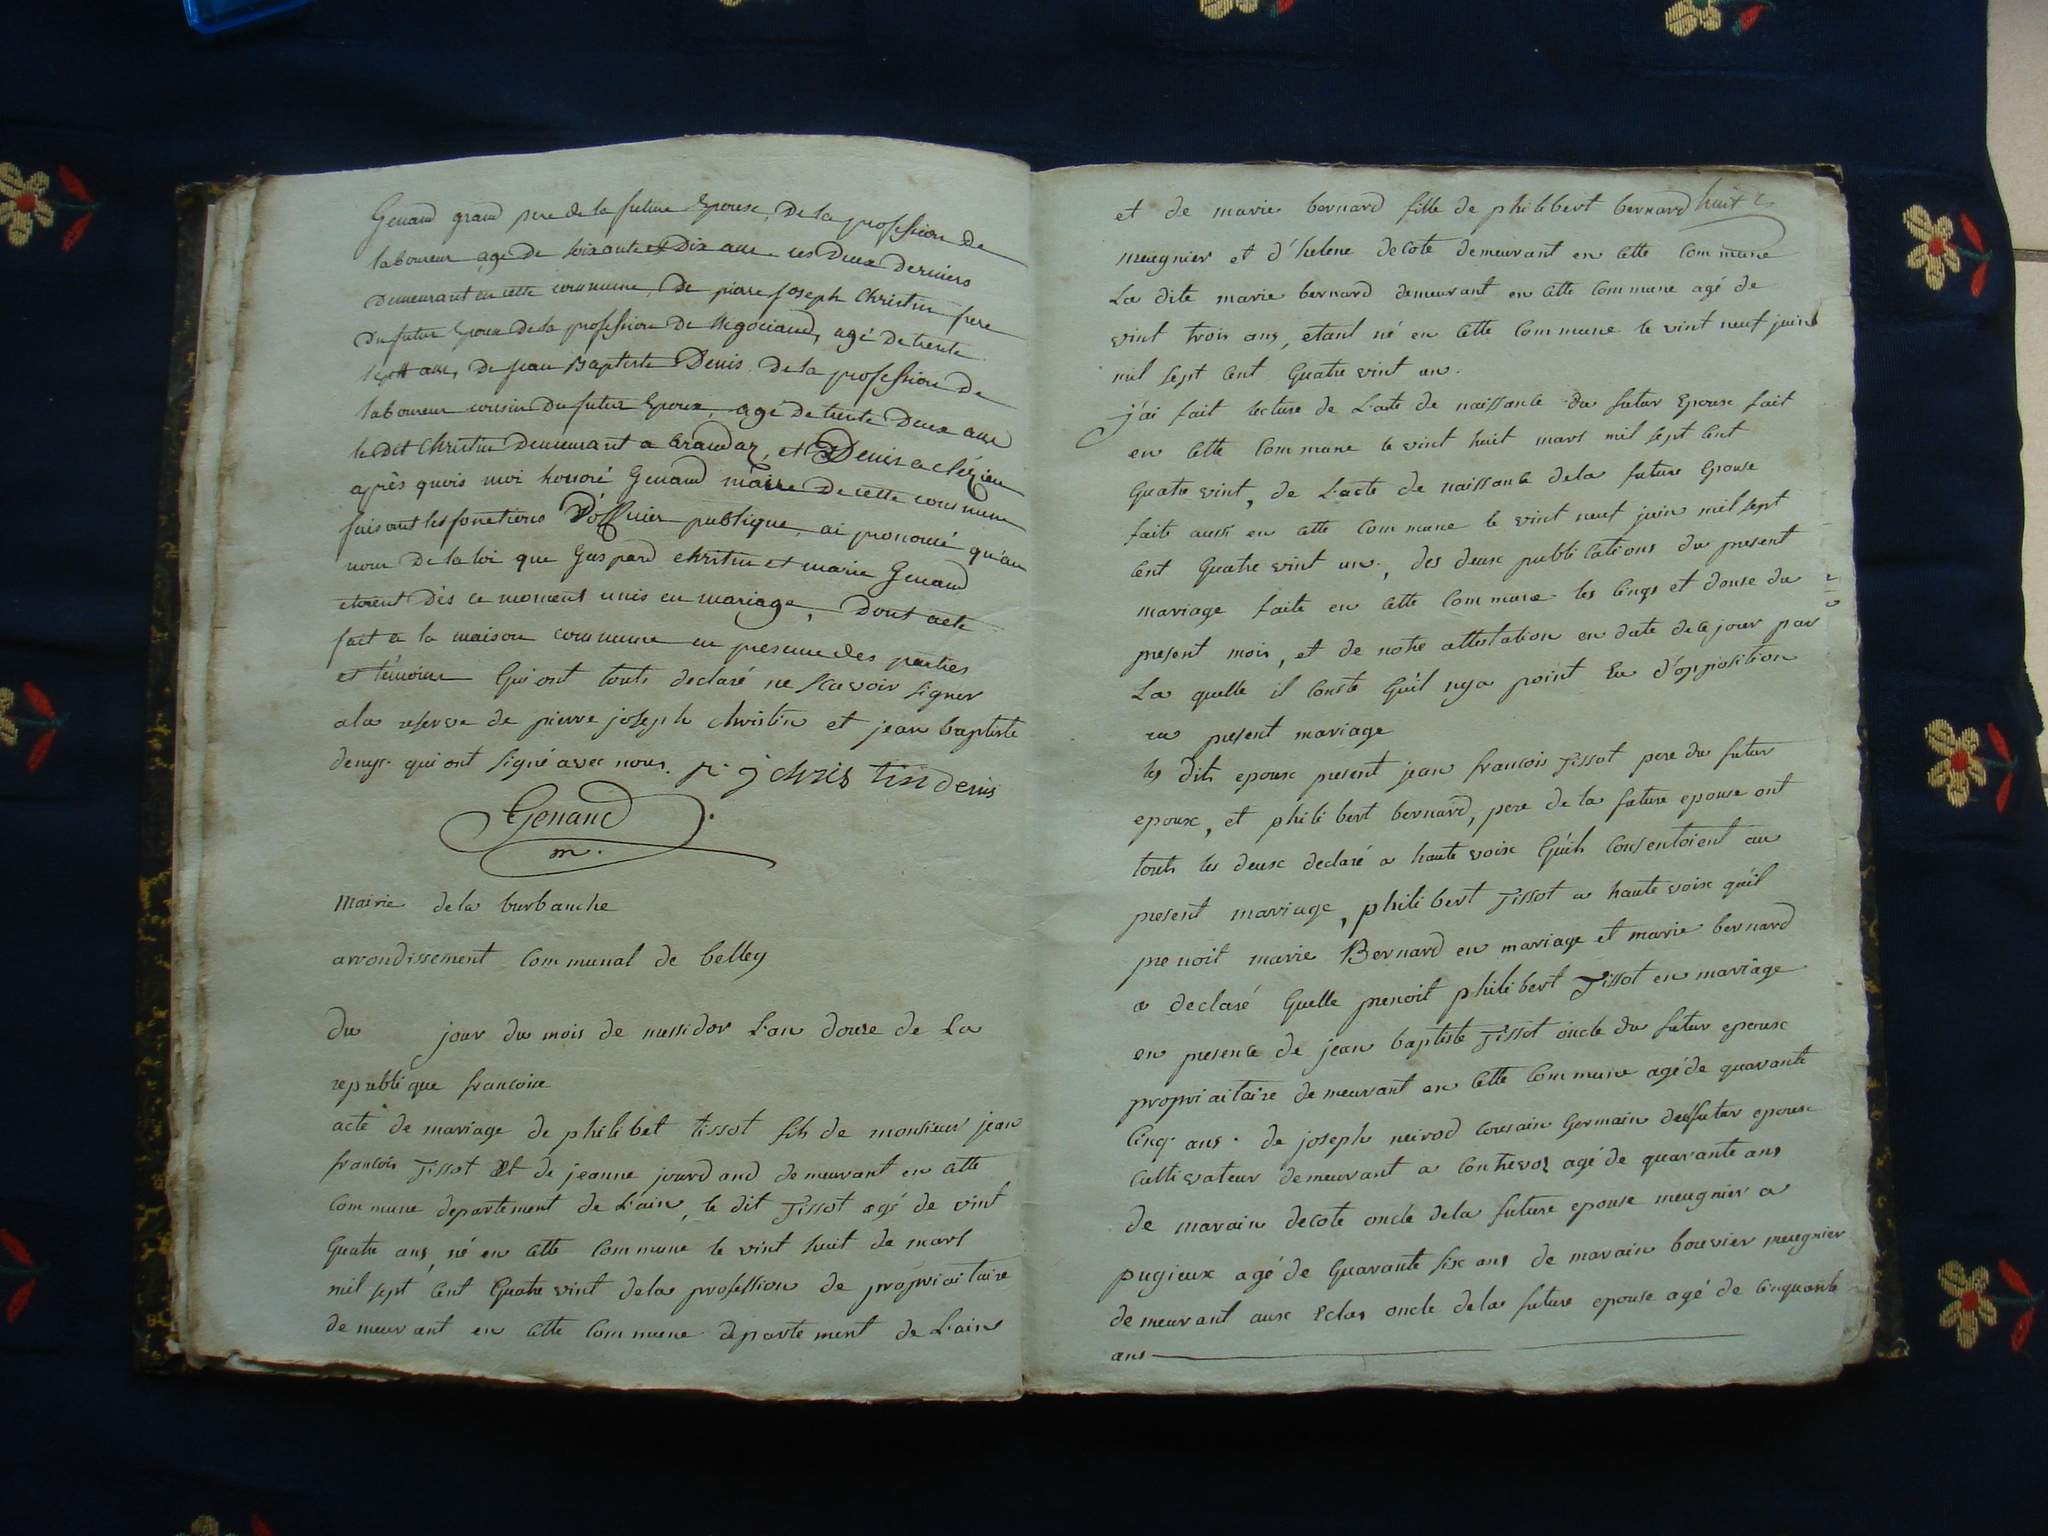 Genand grand pere de la future Epouse, De la profession de
laboureur agé de soixante et Dix ans ces Deux derniers
Demeurant en cette commune, De pierre joseph Christin frere
Du futur Epoux De la profession De Negociand, agé De trente
sept ans, De jean Baptiste Denis De la profession De
laboureur cousin Du futur Epoux, agé De trente Deux ans
le Dit Christin Demeurant a , et Denis a
après quois moi honoré Genand maire De cette commune
faisant les fonctions D'officier publique, ai prononcé qu'au
nom De la loi que Gaspard christin et marie Genand
etoient Dès ce moment unis en mariage, Dont acte
fait a la maison commune en presence des parties
et témoins Qui ont touts declaré ne scavoir signer
a la reserve de pierre joseph christin et jean baptiste
denys qui ont signé avec nous. pi j christin denis
Genand
m.
Mairie dela burbanche
arrondissement communal de belley
du jour du mois de messidor L'an douze de La
republique francoise
acte de mariage de philibet tissot fils de monsieur jean
francois Tissot Et de jeanne jourdand demeurant en cette
commune departement de L'ain, le dit Tissot agé de vint
Quatre ans, né en cette commune le vint huit de mars
mil sept cent Quatre vint dela profession de propriaitaire
demeurant en cette commune departement de L'ain
et de marie bernard fille de philibert bernard huit
meugnier et d'helene decote demeurant en cette commune
La dite marie bernard demeurant en cette commune agé de
vint trois ans, etant né en cette commune le vint neuf juin
mil sept cent Quatre vint un.
j'ai fait lecture de L'acte de naissance du futur Epoux fait
en cette commune le vint huit mars mil sept cent
Quatre vint, de L'acte de naissance dela future Epouse
faite aussi en cette commune le vint neuf juin mil sept
cent Quatre vint un, des deux publications du present
mariage faite en cette commune les cinqs et douse du
present mois, et de notre attestation en date de ce jour par
La quelle il conste Qu'il nya point Eu d'opposition
au present mariage
les dits epoux present jean francois Tissot pere du futur
epoux, et philibert bernard, pere de la future epouse ont
touts les deux declaré a haute voix Qu'ils consentoient au
present mariage, philibert Tissot a haute voix qu'il
prenoit marie Bernard en mariage et marie bernard
a declaré Quelle prenoit philibert Tissot en mariage
en presence de jean baptiste Tissot oncle du futur epoux
propriaitaire demeurant en cette commune agé de quarante
cinq ans. de joseph neirod cousain Germain du futur epoux
cultivateur demeurant a contrevoz agé de quarante ans
de marain decote oncle dela future epouse meugnier a
pugieux agé de Quarante six ans de marain bouvier meugnier
demeurant aux Eclas oncle dela future epouse agé de cinquante
ans